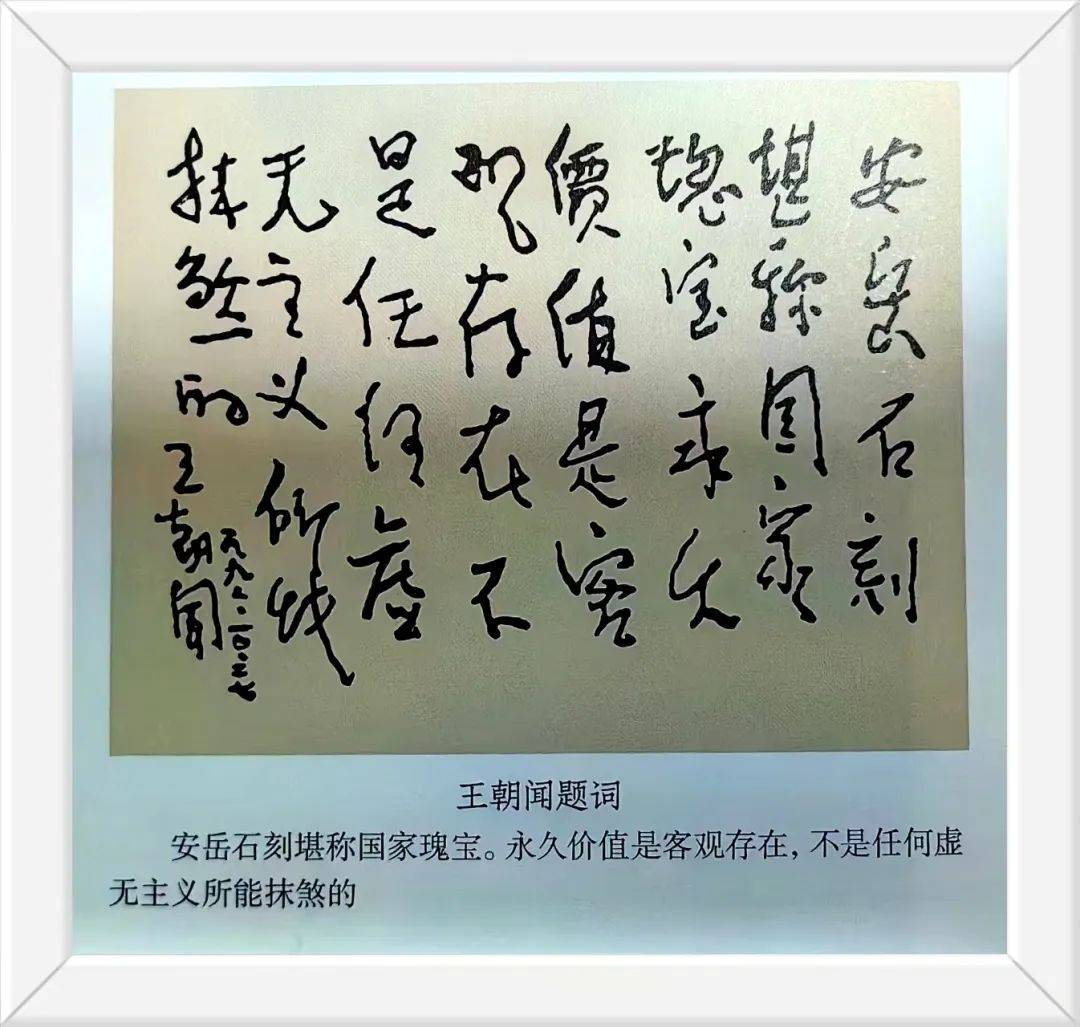 安岳石刻
堪称国家
瑰宝永久
價值是客
观存在不
是任何虚
无主义所能
抹煞的王朝闻
王朝闻题词
安岳石刻堪称国家瑰宝。永久价值是客观存在，不是任何虚
无主义所能抹煞的